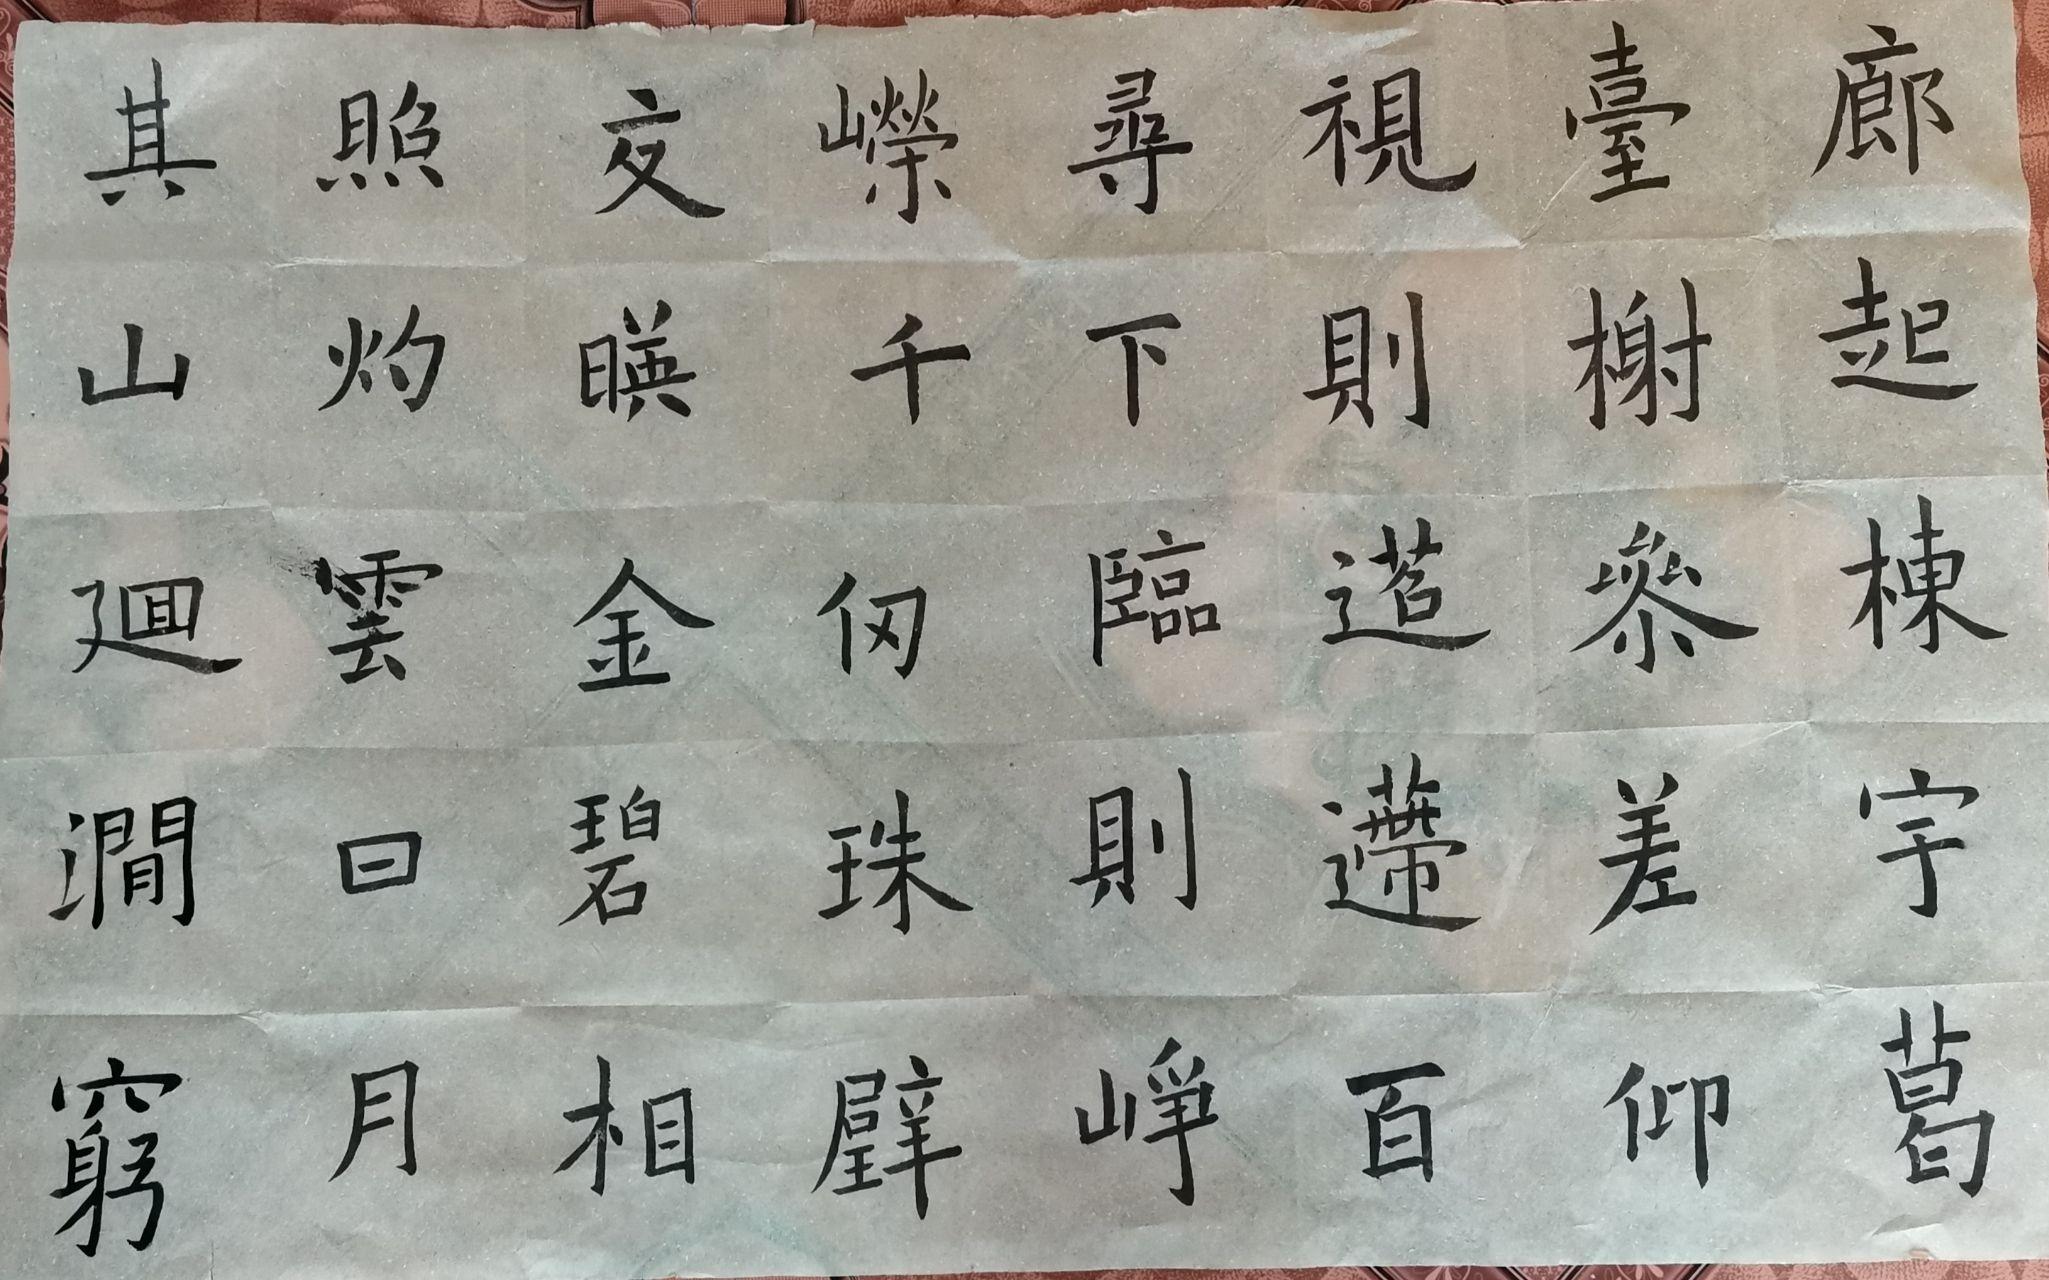 廊起棟宇葛
臺榭參差仰
視則迢遰百
尋下臨則崢
嶸千仞珠璧
交暎金碧相
照灼雲日月
其山廻澗窮